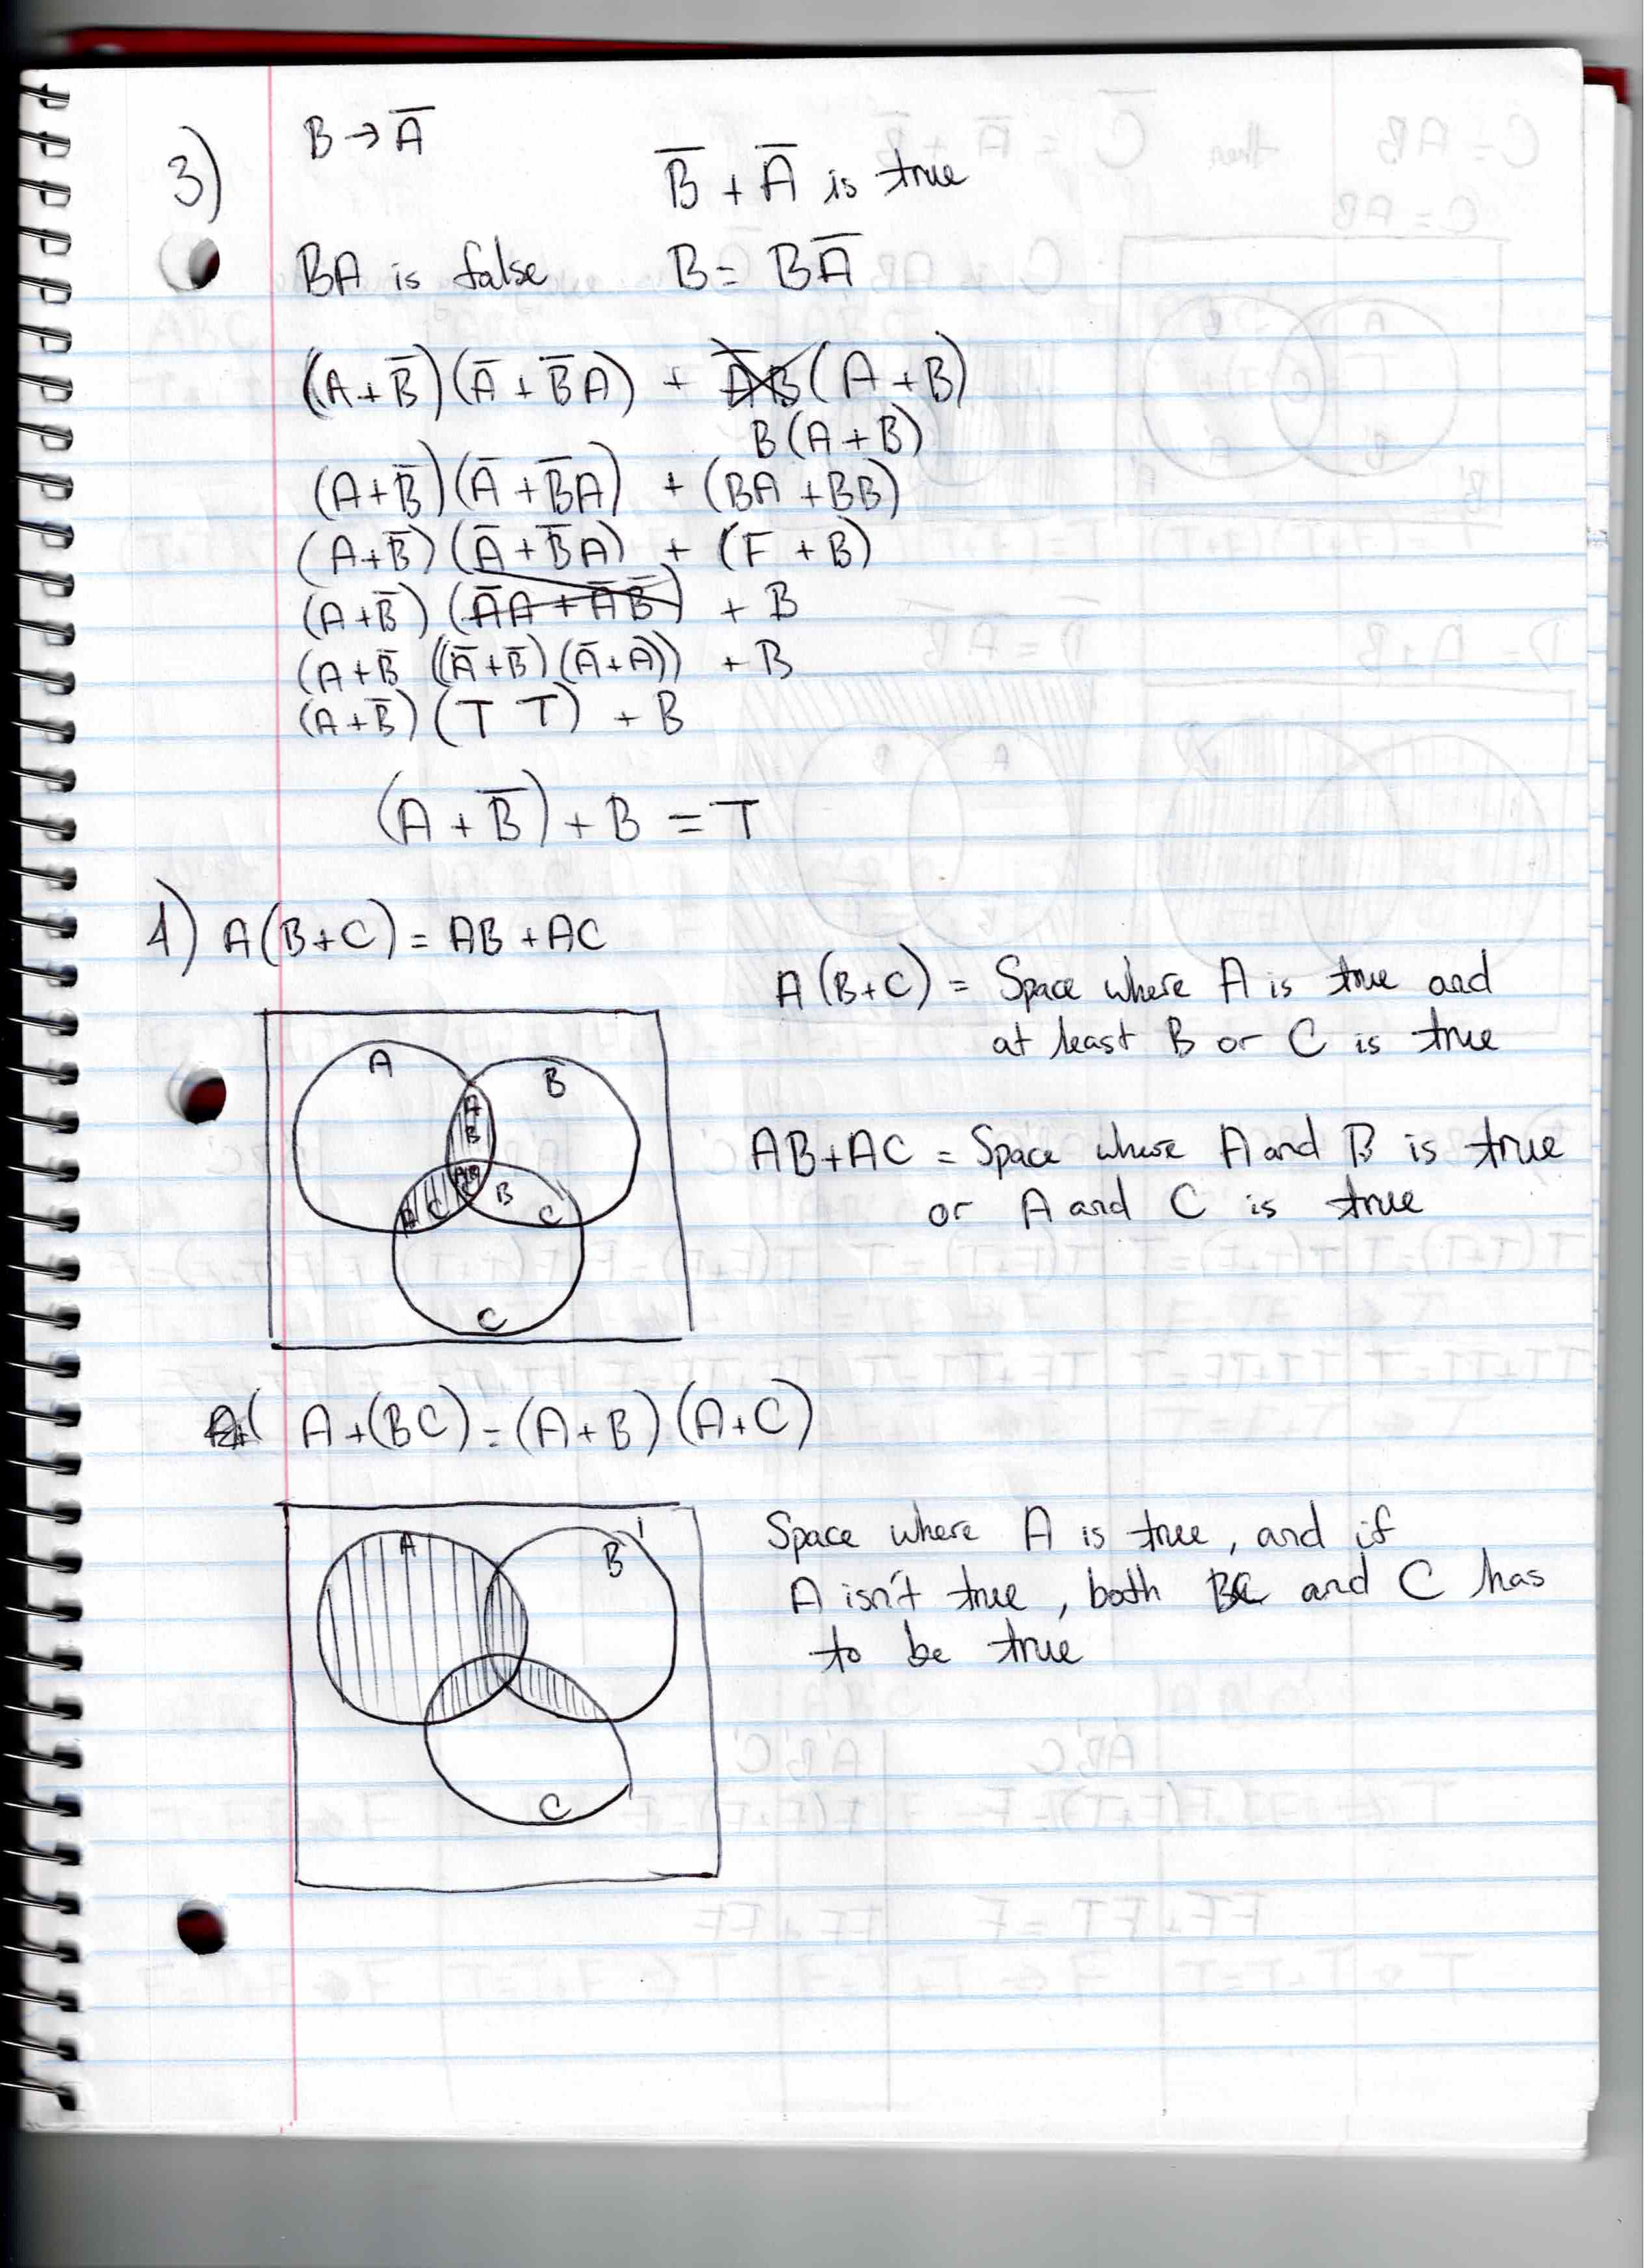 3)
B → A̅
B̅ + A̅ is true
BA is false B = BA̅
(A+B̅)(A̅+B̅A) + A̅B(A+B)
B(A+B)
(A+B̅)(A̅+B̅A) + (BA+BB)
(A+B̅)(A̅+B̅A) + (F+B)
(A+B̅)(A̅A+A̅B̅) + B
(A+B̅ ((A̅+B̅)(A̅+A)) + B
(A+B̅)(T T) + B
(A+B̅)+B = T
1) A(B+C) = AB+AC
A(B+C) = Space where A is true and
at least B or C is true
A
B
A
B
AB
C
B
A C
C
C
AB+AC = Space where A and B is true
or A and C is true
A+(BC) = (A+B)(A+C)
A
B
C
Space where A is true, and if
A isn't true, both B and C has
to be true